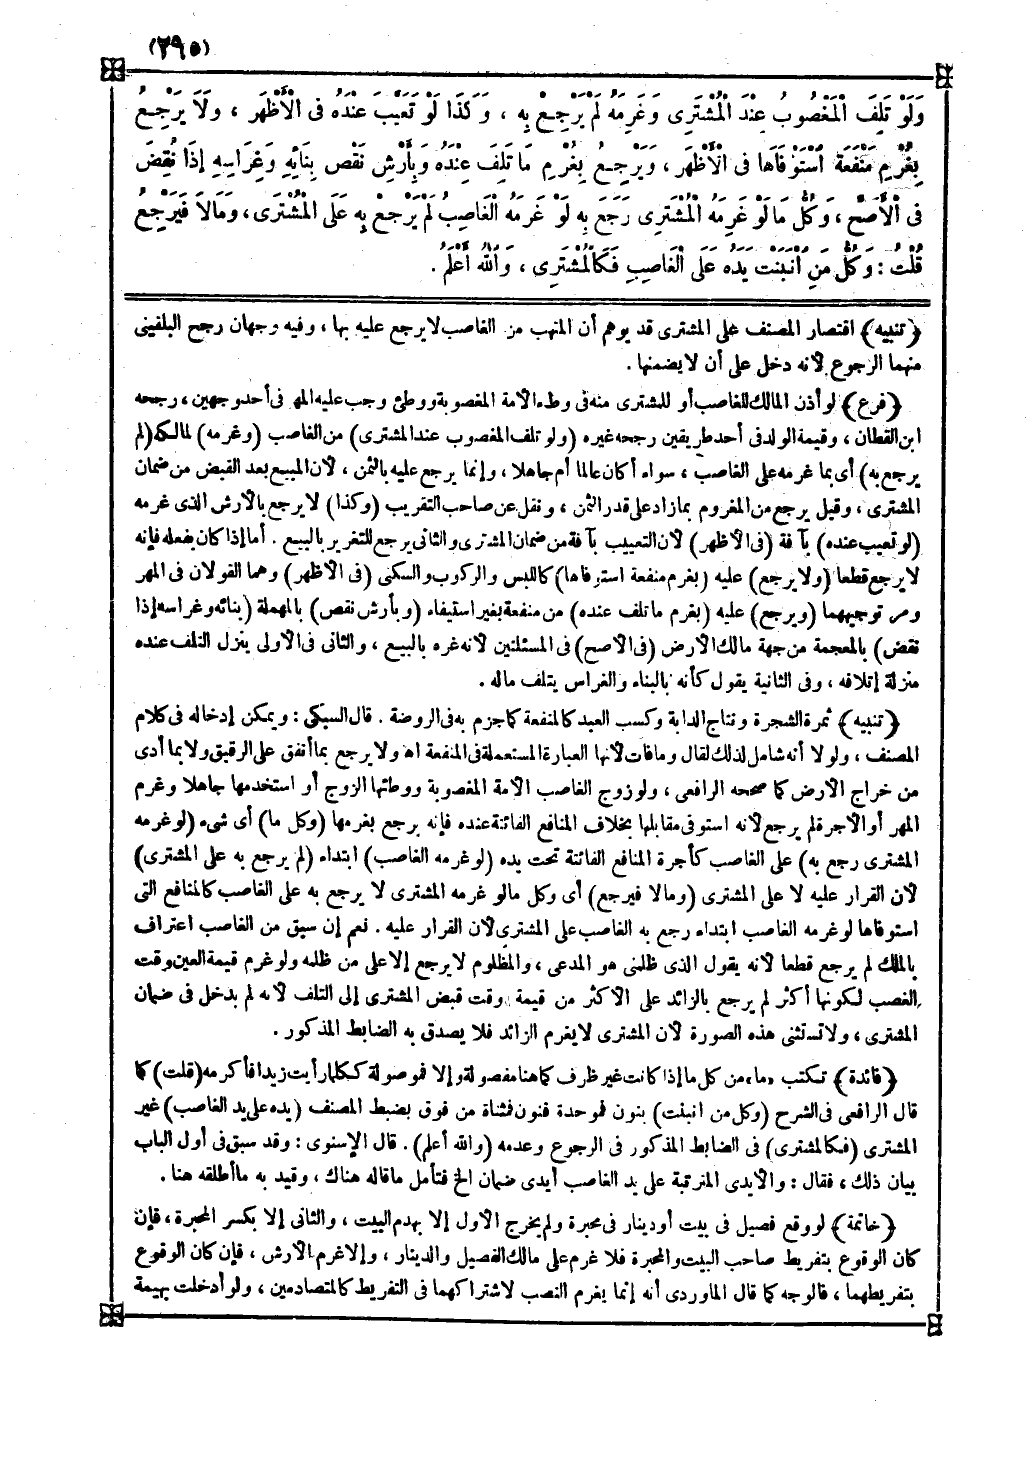 (٢٩٥)
وَلَوْ تَلِفَ الْمَغْصُوبُ عِنْدَ الْمُشْتَرِى وَغَرِمَهُ لَمْ يَرْجِعْ بِهِ ، وَكَذَا لَوْ تَعَيَّبَ عِنْدَهُ فى الْأَظْهَرِ ، وَلَا يَرْجِعُ
بِغُرْمِ مَنْفَعَةٍ اسْتَوْفَاهَا فى الْأَظْهَرِ ، وَيَرْجِعُ بِغُرْمِ مَا تَلِفَ عِنْدَهُ وَبِأَرْشِ نَقْصِ بِنَائِهِ وَغِرَاسِهِ إِذَا نُقِضَ
فى الْأَصَحِّ ، وَكُلُّ مَا لَوْ غَرِمَهُ الْمُشْتَرِى رَجَعَ بِهِ لَوْ غَرِمَهُ الْغَاصِبُ لَمْ يَرْجِعْ بِهِ عَلَى الْمُشْتَرِى ، وَمَالَا فَيَرْجِعُ
قُلْتُ : وَكُلُّ مَنِ انْبَنَتْ يَدُهُ عَلَى يَدِ الْغَاصِبِ فَكَالْمُشْتَرِى ، وَاللّٰهُ أَعْلَمُ .
(تنبيه) اقتصار المصنف على المشترى قد يوهم أن المتهب من الغاصب لا يرجع عليه بها ، وفيه وجهان رجح البلقينى
منهما الرجوع لأنه دخل على أن لا يضمنها .
(فرع) لو أذن المالك للغاصب أو للمشترى منه فى وطء الأمة المغصوبة ووطئ وجب عليه المهر فى أحد وجهين ، رجحه
ابن القطان ، وقيمة الولد فى أحد طريقين رجحه غيره (ولو تلف المغصوب عند المشترى) من الغاصب (وغرمه) لمالكه (لم
يرجع به) أى بما غرمه على الغاصب ، سواء أكان عالما أم جاهلا ، وإنما يرجع عليه بالثمن ، لأن المبيع بعد القبض من ضمان
المشترى ، وقيل يرجع من المغروم بما زاد على قدر الثمن ، ونقل عن صاحب التقريب (وكذا) لا يرجع بالأرش الذى غرمه
(لو تعيب عنده) بآفة (فى الأظهر) لأن التعييب بآفة من ضمان المشترى والثانى يرجع للتغرير بالبيع . أما إذا كان بفعله فإنه
لا يرجع قطعا (ولا يرجع) عليه (بغرم منفعة استوفاها) كاللبس والركوب والسكنى (فى الأظهر) وهما القولان فى المهر
ومر توجيههما (ويرجع) عليه (بغرم ما تلف عنده) من منفعة بغير استيفاء (وبأرش نقص) بالمهملة (بنائه وغراسه إذا
نقض) بالمعجمة من جهة مالك الأرض (فى الأصح) فى المسئلتين لأنه غره بالبيع ، والثانى فى الأولى ينزل التلف عنده
منزلة إتلافه ، وفى الثانية يقول كأنه بالبناء والغراس يتلف ماله .
(تنبيه) ثمرة الشجرة ونتاج الدابة وكسب العبد كالمنفعة كما جزم به فى الروضة . قال السبكى : ويمكن إدخاله فى كلام
المصنف ، ولولا أنه شامل لذلك لقال وما فات لأنها العبارة المستعملة فى المنفعة اه ولا يرجع بما أنفق على الرقيق ولا بما أدى
من خراج الأرض كما صححه الرافعى ، ولو زوج الغاصب الأمة المغصوبة ووطئها الزوج أو استخدمها جاهلا وغرم
المهر أو الأجرة لم يرجع لأنه استوفى مقابلها بخلاف المنافع الفائتة عنده فإنه يرجع بغرمها (وكل ما) أى شىء (لو غرمه
المشترى رجع به) على الغاصب كأجرة المنافع الفائتة تحت يده (لو غرمه الغاصب) ابتداء (لم يرجع به على المشترى)
لأن القرار عليه لا على المشترى (ومالا فيرجع) أى وكل مالو غرمه المشترى لا يرجع به على الغاصب كالمنافع التى
استوفاها لو غرمه الغاصب ابتداء رجع به الغاصب على المشترى لأن القرار عليه . نعم إن سبق من الغاصب اعتراف
بالملك لم يرجع قطعا لأنه يقول الذى ظلمنى هو المدعى ، والمظلوم لا يرجع إلا على من ظلمه ولو غرم قيمة العين وقت
الغصب لكونها أكثر لم يرجع بالزائد على الأكثر من قيمة وقت قبض المشترى إلى التلف لأنه لم يدخل فى ضمان
المشترى ، ولا تستثنى هذه الصورة لأن المشترى لا يغرم الزائد فلا يصدق به الضابط المذكور .
(فائدة) تكتب «ما» من كل ما إذا كانت غير ظرف كما هنا مفصولة وإلا فموصولة ككلما رأيت زيدا فأكرمه (قلت) كما
قال الرافعى فى الشرح (وكل من انبنت) بنون فموحدة فنون فمثناة من فوق بضبط المصنف (يده على يد الغاصب) غير
المشترى (فكالمشترى) فى الضابط المذكور فى الرجوع وعدمه (والله أعلم) . قال الإسنوى : وقد سبق فى أول الباب
بيان ذلك ، فقال : والأيدى المترتبة على يد الغاصب أيدى ضمان الخ فتأمل ماقاله هناك ، وقيد به ما أطلقه هنا .
(خاتمة) لو وقع فصيل فى بيت أو دينار فى محبرة ولم يخرج الأول إلا بهدم البيت ، والثانى إلا بكسر المحبرة ، فإن
كان الوقوع بتفريط صاحب البيت والمحبرة فلا غرم على مالك الفصيل والدينار ، وإلا غرم الأرش ، فإن كان الوقوع
بتفريطهما ، فالوجه كما قال الماوردى أنه إنما يغرم النصب لاشتراكهما فى التفريط كالمتصادمين ، ولو أدخلت بهيمة